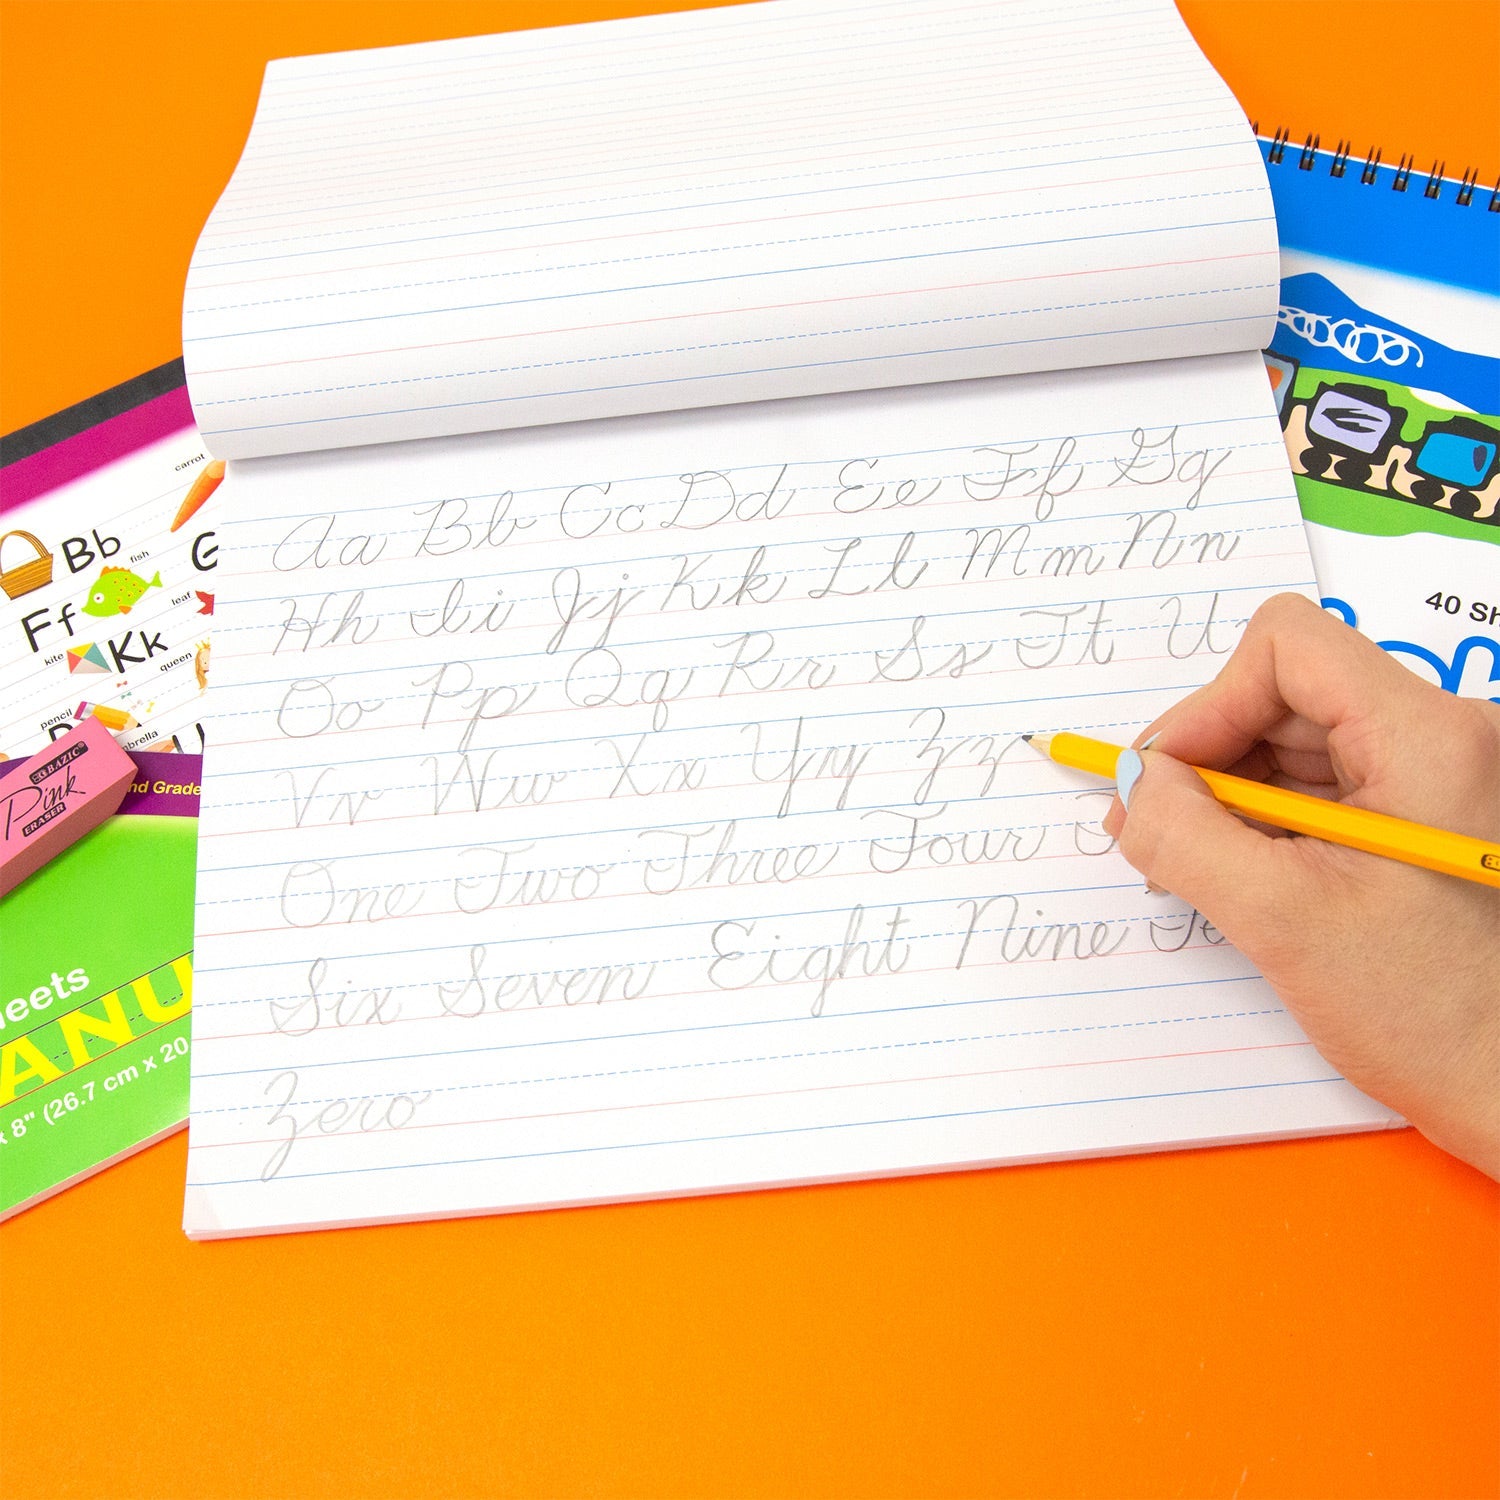 Aa Bb Cc Dd Ee Ff Gg
Hh Ii Jj Kk Ll Mm Nn
Oo Pp Qq Rr Ss Tt U
Vv Ww Xx Yy Zz
One Two Three Four
Six Seven Eight Nine Te
Zero
carrot
Bb
fish
G
Ff
leaf
kite
Kk
queen
pencil
mbrella
BAZIC
Pink
ERASER
nd Grade
eets
ANU
x 8" (26.7 cm x 20
40 Sh